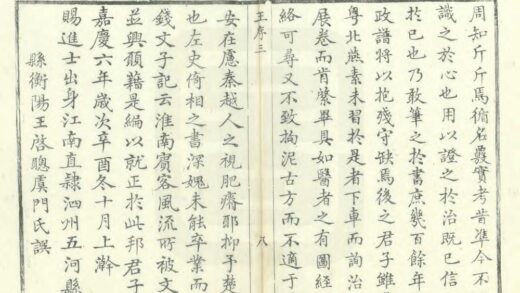 周知斤斤焉循名覈實考昔準今不
識之於心也用以證之於治既已信
於已也乃敢筆之於書庶幾百餘年
政譜將以抱殘守缺焉後之君子雖
粤北燕素未習於是者下車而詢治
展卷而肯綮畢具如醫者之有圖經
絡可尋又不致拘泥古方而不適于
王序三
八
安在慮秦越人之視肥瘠耶抑予楚
也左史倚相之書深媿未能卒業而
錢文子記云淮南賓客風流所被文
並興願藉是編以就正於此邦君子
嘉慶六年歲次辛酉冬十月上澣
賜進士出身江南直隸泗州五河縣
縣衡陽王啓聰虞門氏譔